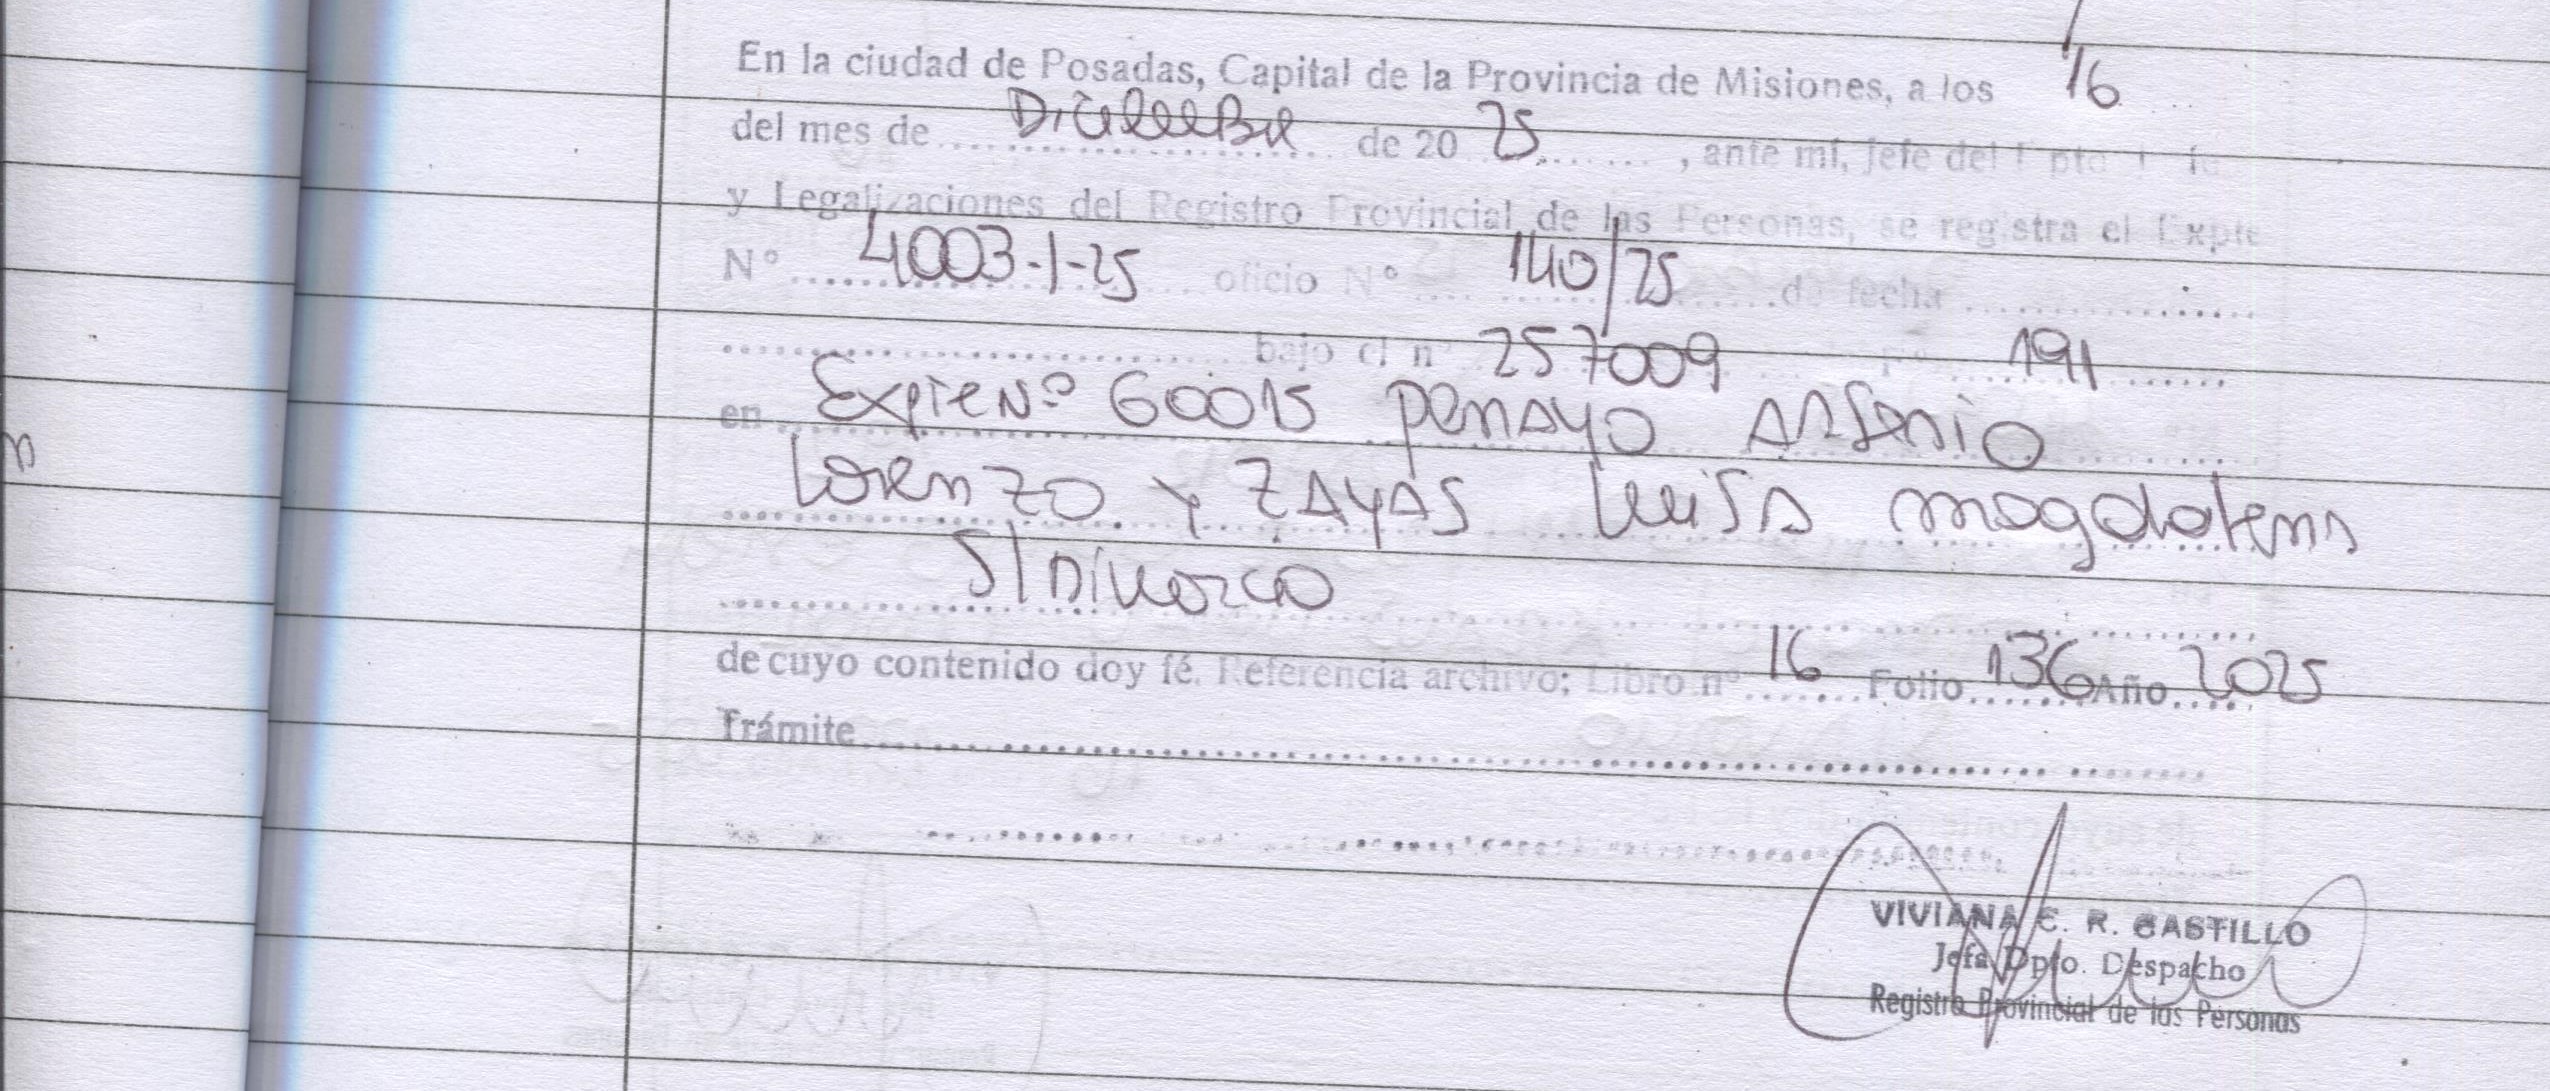 En la ciudad de Posadas, Capital de la Provincia de Misiones, a los 16
del mes de Diciembre de 20 25, ante mí, Jefe del Dpto.
y Legalizaciones del Registro Provincial de las Personas, se registra el Expte
Nº 4003-1-25 oficio Nº 140/25 de fecha
bajo el nº 257009 Fº 191
en Expte Nº 60015 Penayo Arsenio
Lorenzo y Zayas Luisa Magdalena
S/Divorcio
de cuyo contenido doy fé. Referencia archivo; Libro nº 16 Folio 136 Año 2025
Trámite
VIVIANA E. R. CASTILLO
Jefa Dpto. Despacho
Registro Provincial de las Personas